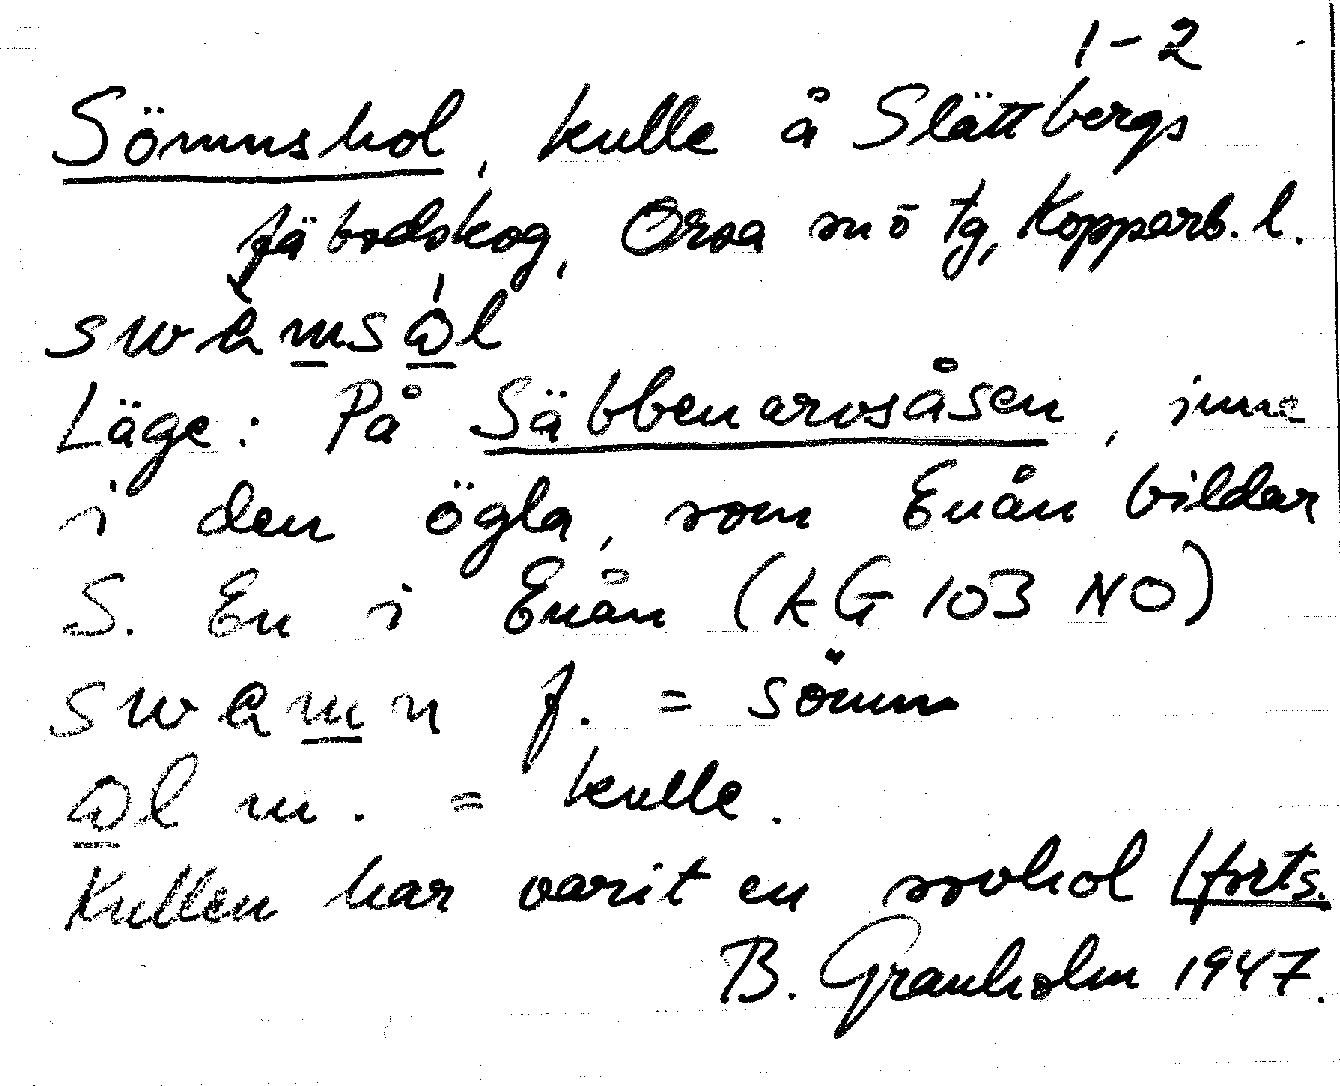 1-2
Sömnshol, kulle å Slättbergs
fäbodskog, Orsa snö tg, Kopparb. l.
swèmsó̲l
Läge: På Säbbenarvsåsen, inne
i den ögla, som Enån bildar
S. En i Enån (kG 103 NO)
swem̲n f. = sömn
o̲l m. = kulle.
Kullen har varit en sovhol (forts.
B. Granholm 1947.